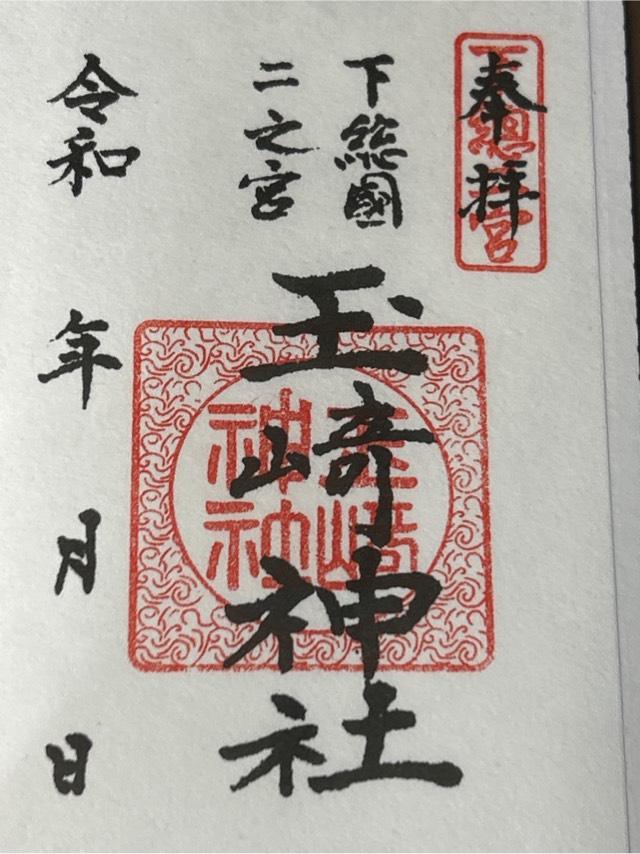 奉拝
下総二宮
下総國
二之宮
玉﨑神社
玉﨑神社
令和 年 月 日